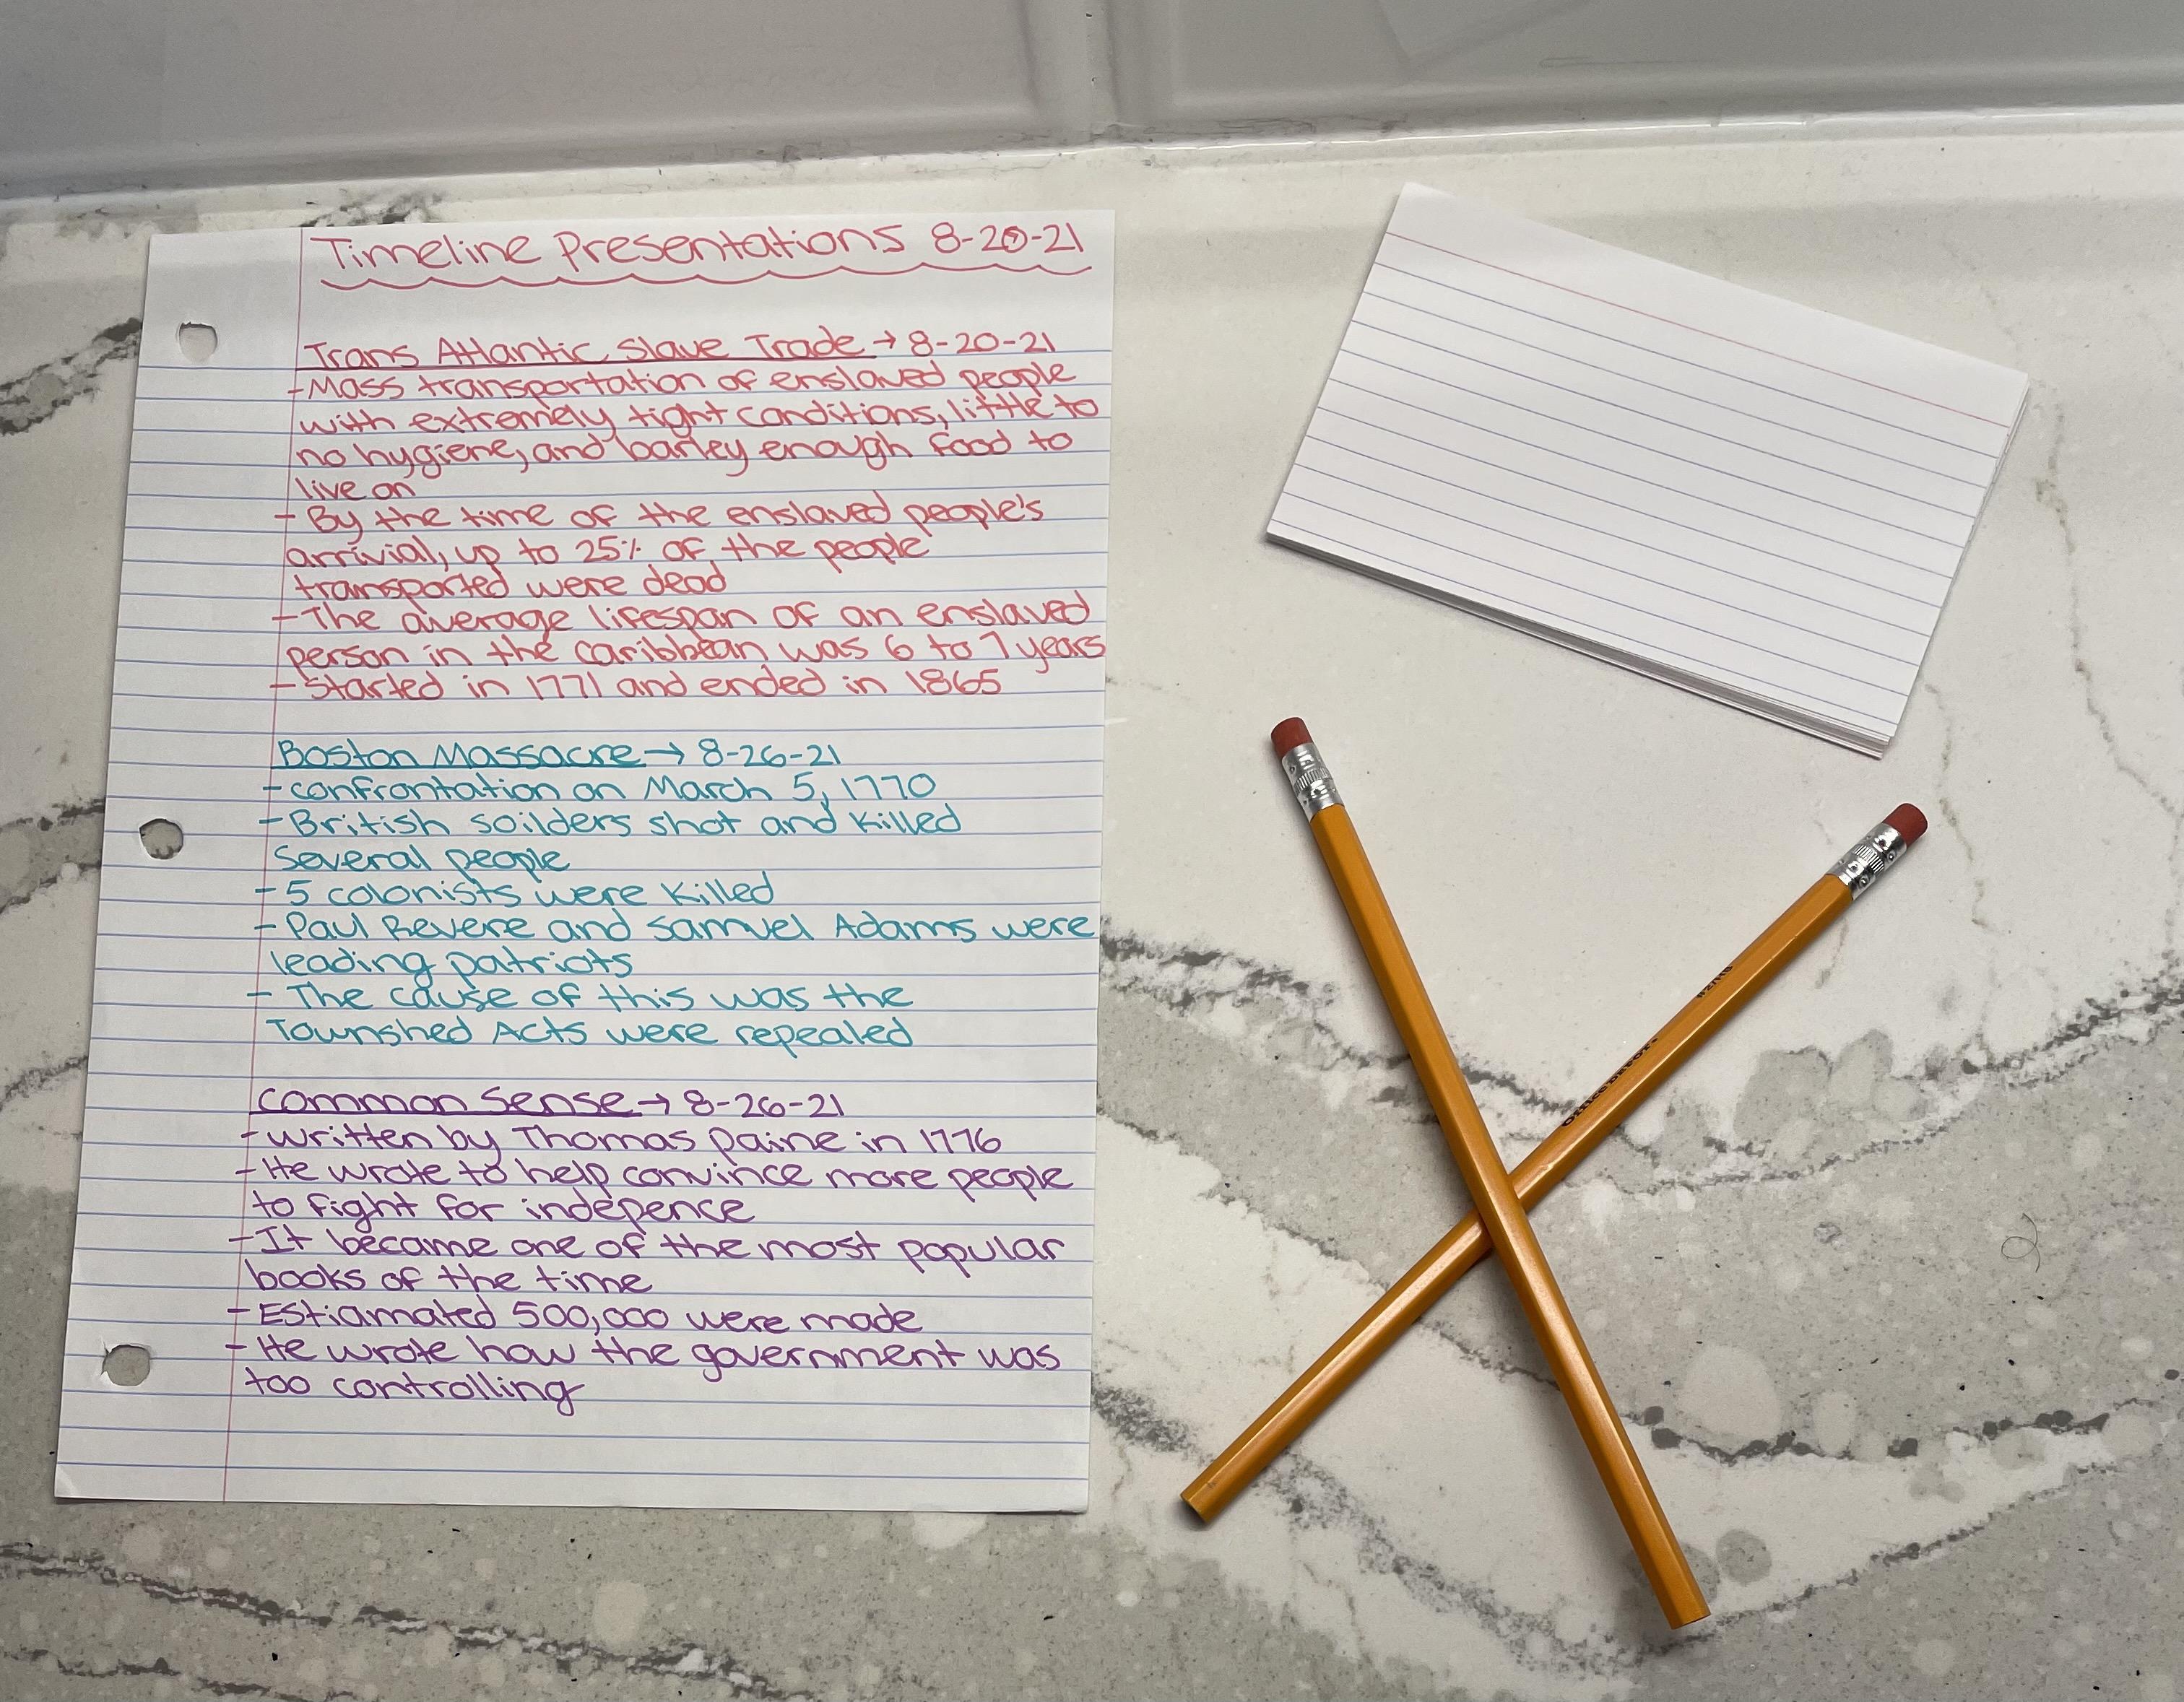 Timeline Presentations 8-20-21
Trans Atlantic Slave Trade → 8-20-21
- Mass transportation of enslaved people
with extremely tight conditions, little to
no hygiene, and barley enough food to
live on
- By the time of the enslaved people's
arrivial, up to 25% of the people
transported were dead
- The average lifespan of an enslaved
person in the caribbean was 6 to 7 years
- Started in 1771 and ended in 1865
Boston Massacre → 8-26-21
- confrontation on March 5, 1770
- British soilders shot and killed
several people
- 5 colonists were killed
- Paul Revere and Samuel Adams were
leading patriots
- The cause of this was the
Townshed Acts were repealed
Common Sense → 8-26-21
- written by Thomas Paine in 1776
- He wrote to help convince more people
to fight for indepence
- It became one of the most popular
books of the time
- Estiamated 500,000 were made
- He wrote how the government was
too controlling
Office DEPOT